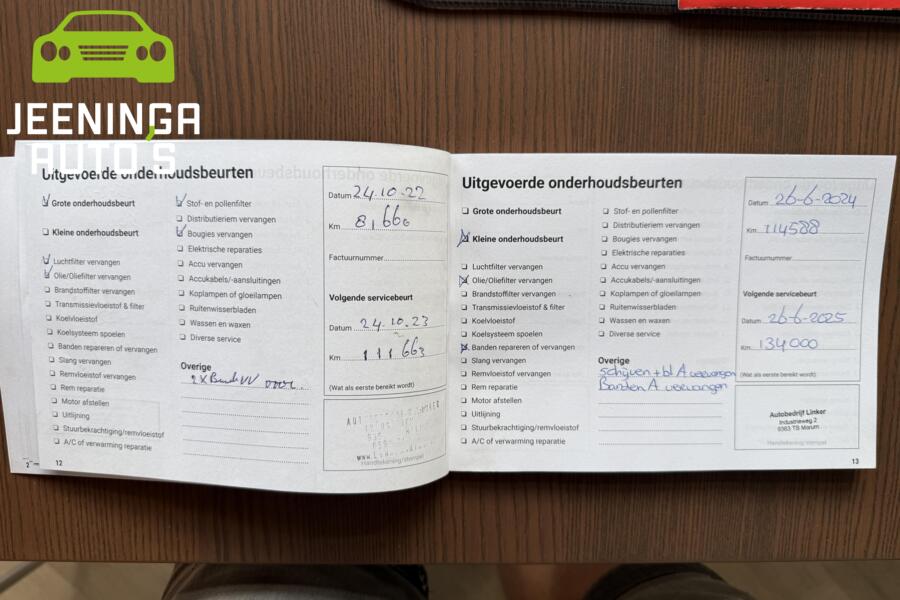 JEENINGA
AUTO'S
Uitgevoerde onderhoudsbeurten
Grote onderhoudsbeurt
Kleine onderhoudsbeurt
Luchtfilter vervangen
Olie/Oliefilter vervangen
Brandstoffilter vervangen
Transmissievloeistof & filter
Koelvloeistof
Koelsysteem spoelen
Banden repareren of vervangen
Slang vervangen
Remvloeistof vervangen
Rem reparatie
Motor afstellen
Uitlijning
Stuurbekrachtiging/remvloeistof
A/C of verwarming reparatie
12
Stof- en pollenfilter
Distributieriem vervangen
Bougies vervangen
Elektrische reparaties
Accu vervangen
Accukabels/-aansluitingen
Koplampen of gloeilampen
Ruitenwisserbladen
Wassen en waxen
Diverse service
Overige
2x
Datum 24.10.22
Km 81,660
Factuurnummer
Volgende servicebeurt
Datum 24.10.23
Km 111663
(Wat als eerste bereikt wordt)
Handtekening/stempel
Uitgevoerde onderhoudsbeurten
Grote onderhoudsbeurt
Kleine onderhoudsbeurt
Luchtfilter vervangen
Olie/Oliefilter vervangen
Brandstoffilter vervangen
Transmissievloeistof & filter
Koelvloeistof
Koelsysteem spoelen
Banden repareren of vervangen
Slang vervangen
Remvloeistof vervangen
Rem reparatie
Motor afstellen
Uitlijning
Stuurbekrachtiging/remvloeistof
A/C of verwarming reparatie
Stof- en pollenfilter
Distributieriem vervangen
Bougies vervangen
Elektrische reparaties
Accu vervangen
Accukabels/-aansluitingen
Koplampen of gloeilampen
Ruitenwisserbladen
Wassen en waxen
Diverse service
Overige
Schijven + bl A vervangen
Banden A vervangen
Datum 26-6-2024
Km 114588
Factuurnummer
Volgende servicebeurt
Datum 26-6-2025
Km 134000
(Wat als eerste bereikt wordt)
Autobedrijf Linker
Industrieweg 2
9363 TB Marum
Handtekening/stempel
13